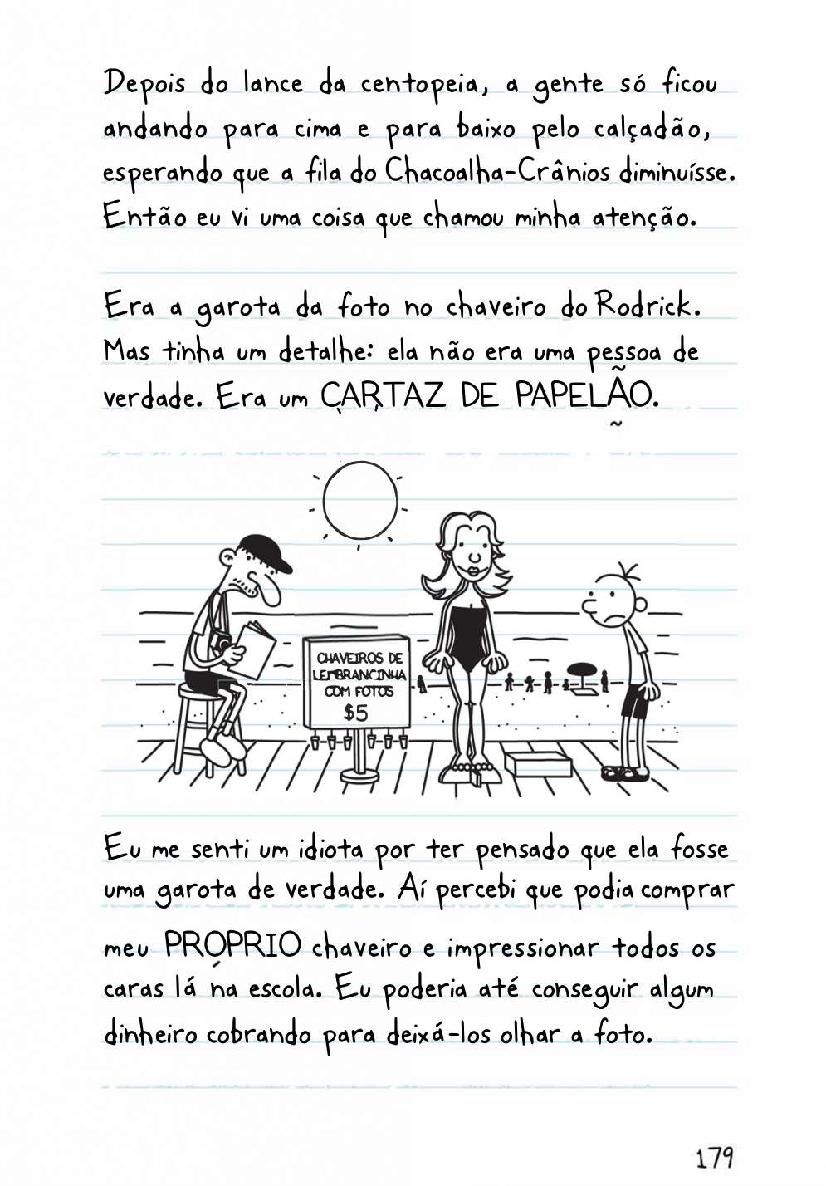 Depois do lance da centopeia, a gente só ficou
andando para cima e para baixo pelo calçadão,
esperando que a fila do Chacoalha-Crânios diminuísse.
Então eu vi uma coisa que chamou minha atenção.
Era a garota da foto no chaveiro do Rodrick.
Mas tinha um detalhe: ela não era uma pessoa de
verdade. Era um CARTAZ DE PAPELÃO.
CHAVEIROS DE
LEMBRANCINHA
COM FOTOS
$5
Eu me senti um idiota por ter pensado que ela fosse
uma garota de verdade. Aí percebi que podia comprar
meu PROPRIO chaveiro e impressionar todos os
caras lá na escola. Eu poderia até conseguir algum
dinheiro cobrando para deixá-los olhar a foto.
179